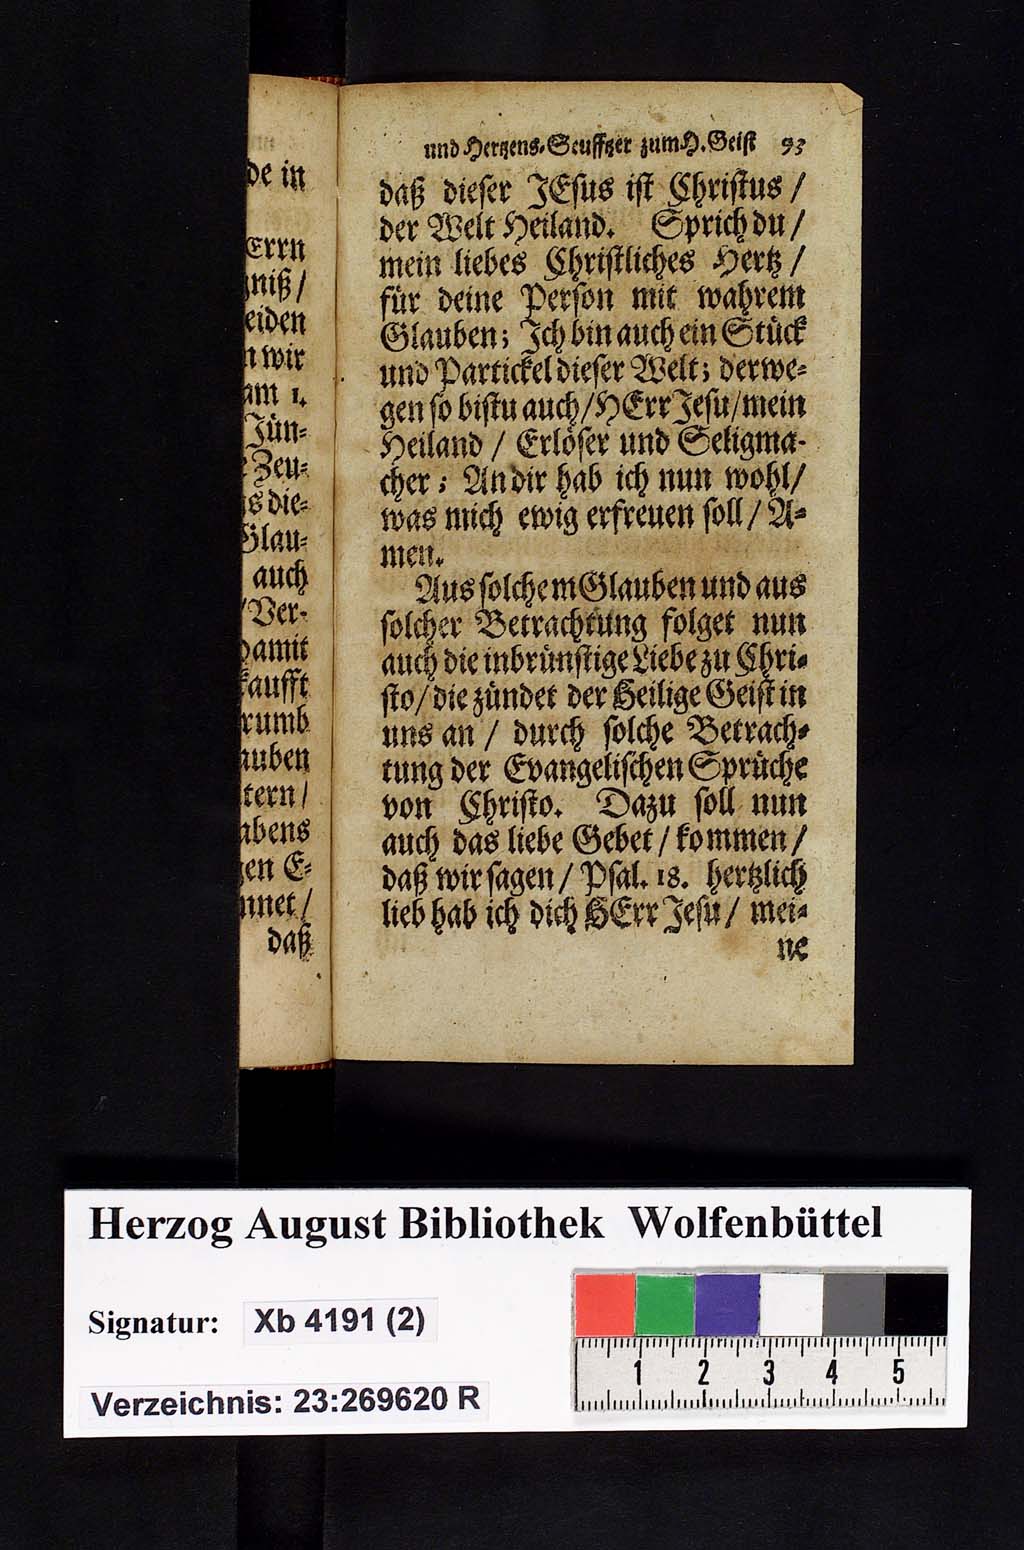 de in
Errn
niß/
eiden
n wir
am 1.
Jün-
Zeu-
s die-
Glau-
auch
Ver-
damit
kaufft
rumb
auben
tern/
abens
en E-
nnet/
daß
und Hertzens-Seufftzer zum H. Geist 93
daß dieser JEsus ist Christus /
der Welt Heiland. Sprich du /
mein liebes Christliches Hertz /
für deine Person mit wahrem
Glauben; Ich bin auch ein Stück
und Partickel dieser Welt; derwe-
gen so bistu auch/HErr Jesu/mein
Heiland / Erlöser und Seligma-
cher; An dir hab ich nun wohl/
was mich ewig erfreuen soll / A-
men.
Aus solchem Glauben und aus
solcher Betrachtung folget nun
auch die inbrünstige Liebe zu Chri-
sto/ die zündet der Heilige Geist in
uns an / durch solche Betrach-
tung der Evangelischen Sprüche
von Christo. Dazu soll nun
auch das liebe Gebet / kommen /
daß wir sagen / Psal. 18. hertzlich
lieb hab ich dich HErr Jesu / mei-
ne
Herzog August Bibliothek Wolfenbüttel
Signatur: Xb 4191 (2)
Verzeichnis: 23:269620 R
1 2 3 4 5